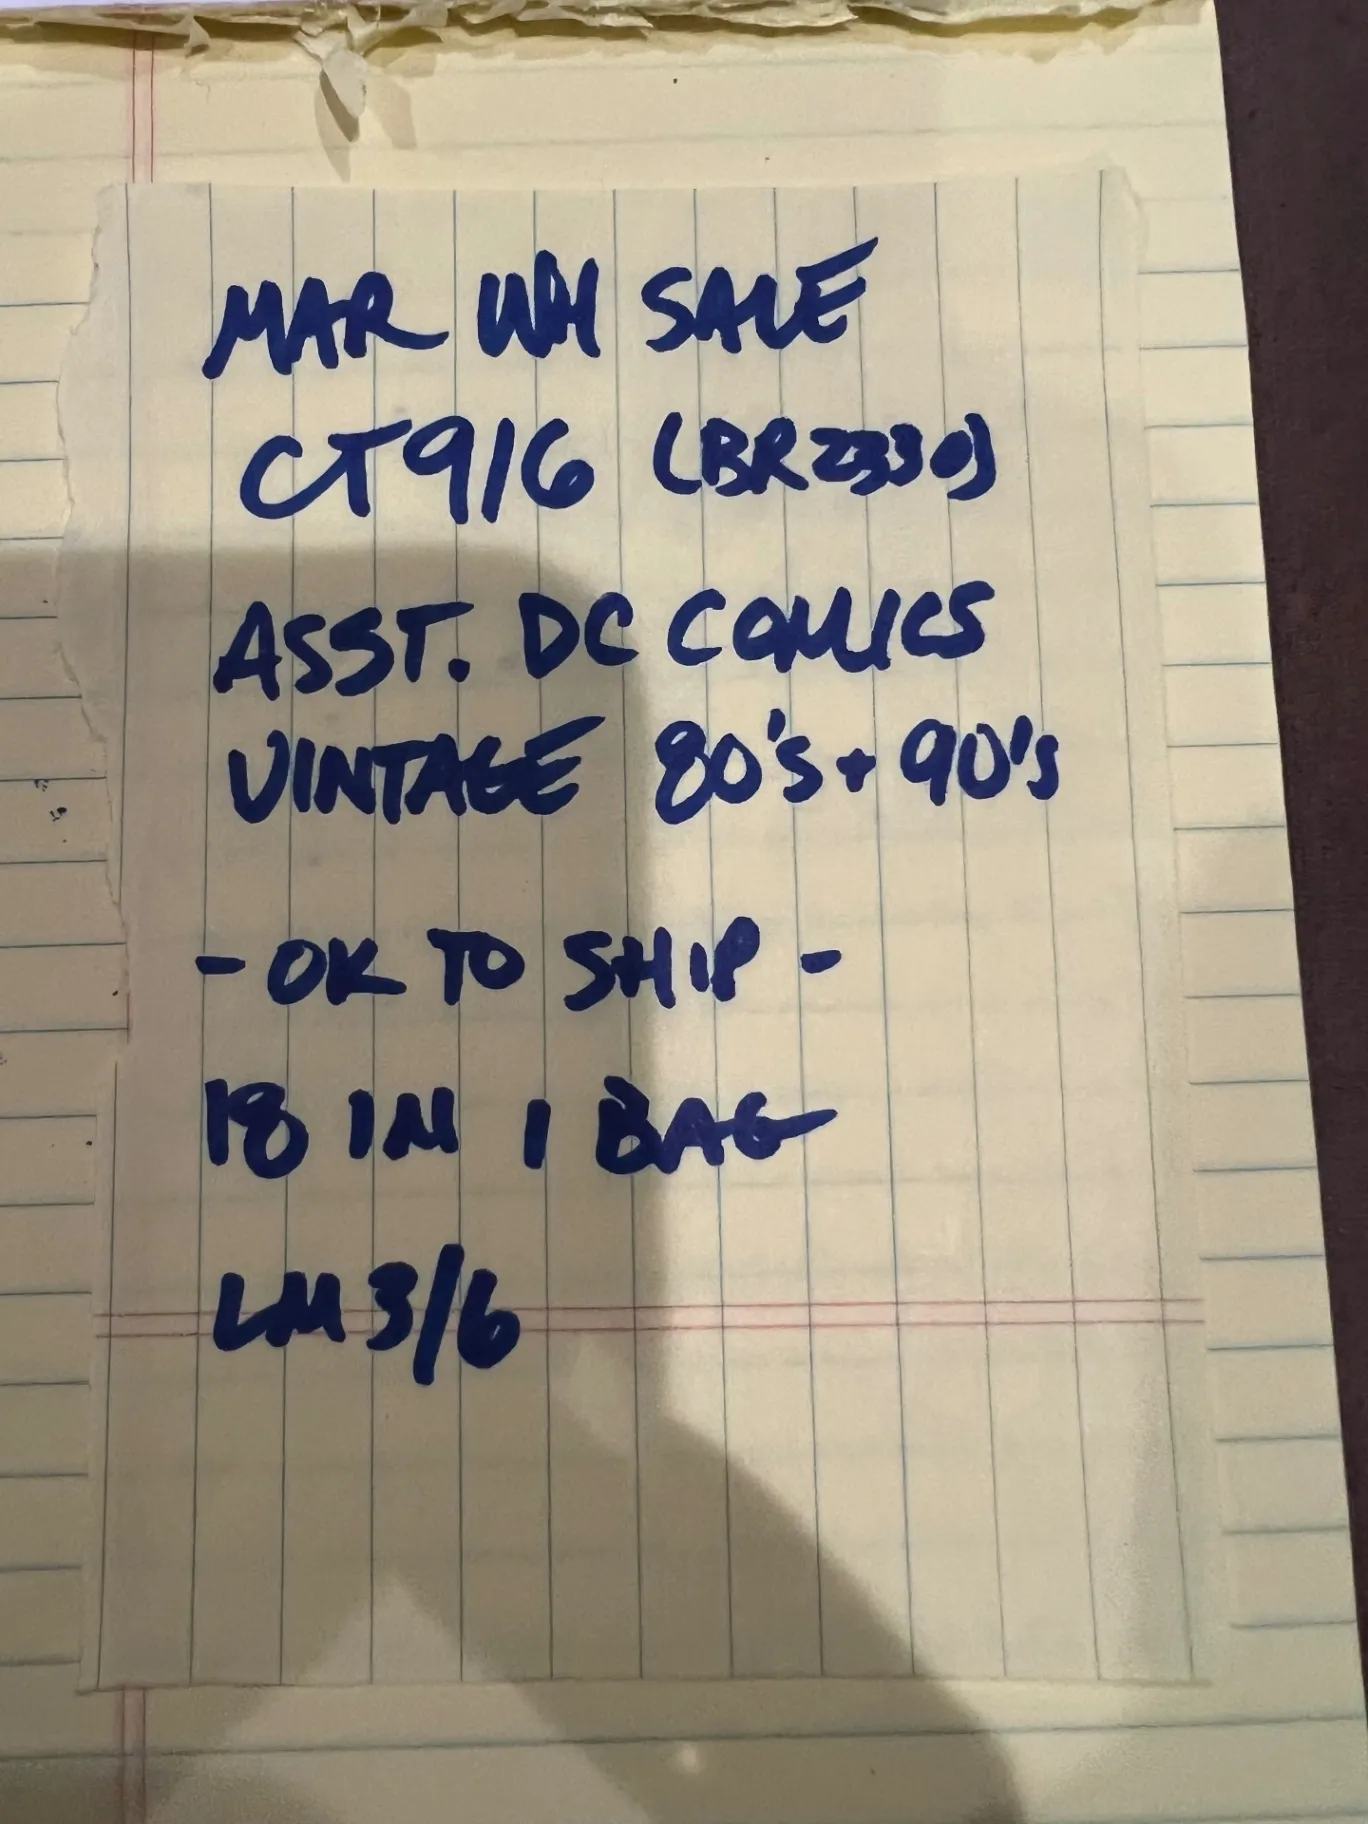 MAR WH SALE
CT916 (BR2330)
ASST. DC COMICS
VINTAGE 80's + 90's
- OK TO SHIP -
18 IN 1 BAG
LM 3/6